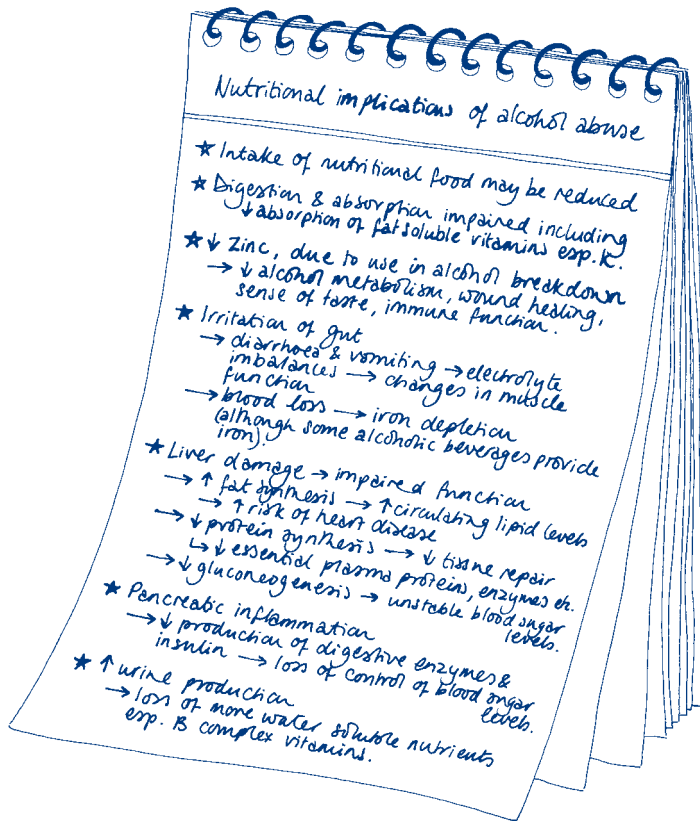 Nutritional implications of alcohol abuse
★ Intake of nutritional food may be reduced
★ Digestion & absorption impaired including
↓ absorption of fat soluble vitamins esp. K.
★ ↓ Zinc, due to use in alcohol breakdown
→ ↓ alcohol metabolism, wound healing,
sense of taste, immune function.
★ Irritation of gut
→ diarrhoea & vomiting → electrolyte
imbalances → changes in muscle
function
→ blood loss → iron depletion
(although some alcoholic beverages provide
iron).
★ Liver damage → impaired function
→ ↑ fat synthesis → ↑ circulating lipid levels
→ ↑ risk of heart disease
→ ↓ protein synthesis → ↓ tissue repair
↳ ↓ essential plasma proteins, enzymes etc.
→ ↓ gluconeogenesis → unstable blood sugar
levels.
★ Pancreatic inflammation
→ ↓ production of digestive enzymes &
insulin → loss of control of blood sugar
levels.
★ ↑ urine production
→ loss of more water soluble nutrients
esp. B complex vitamins.